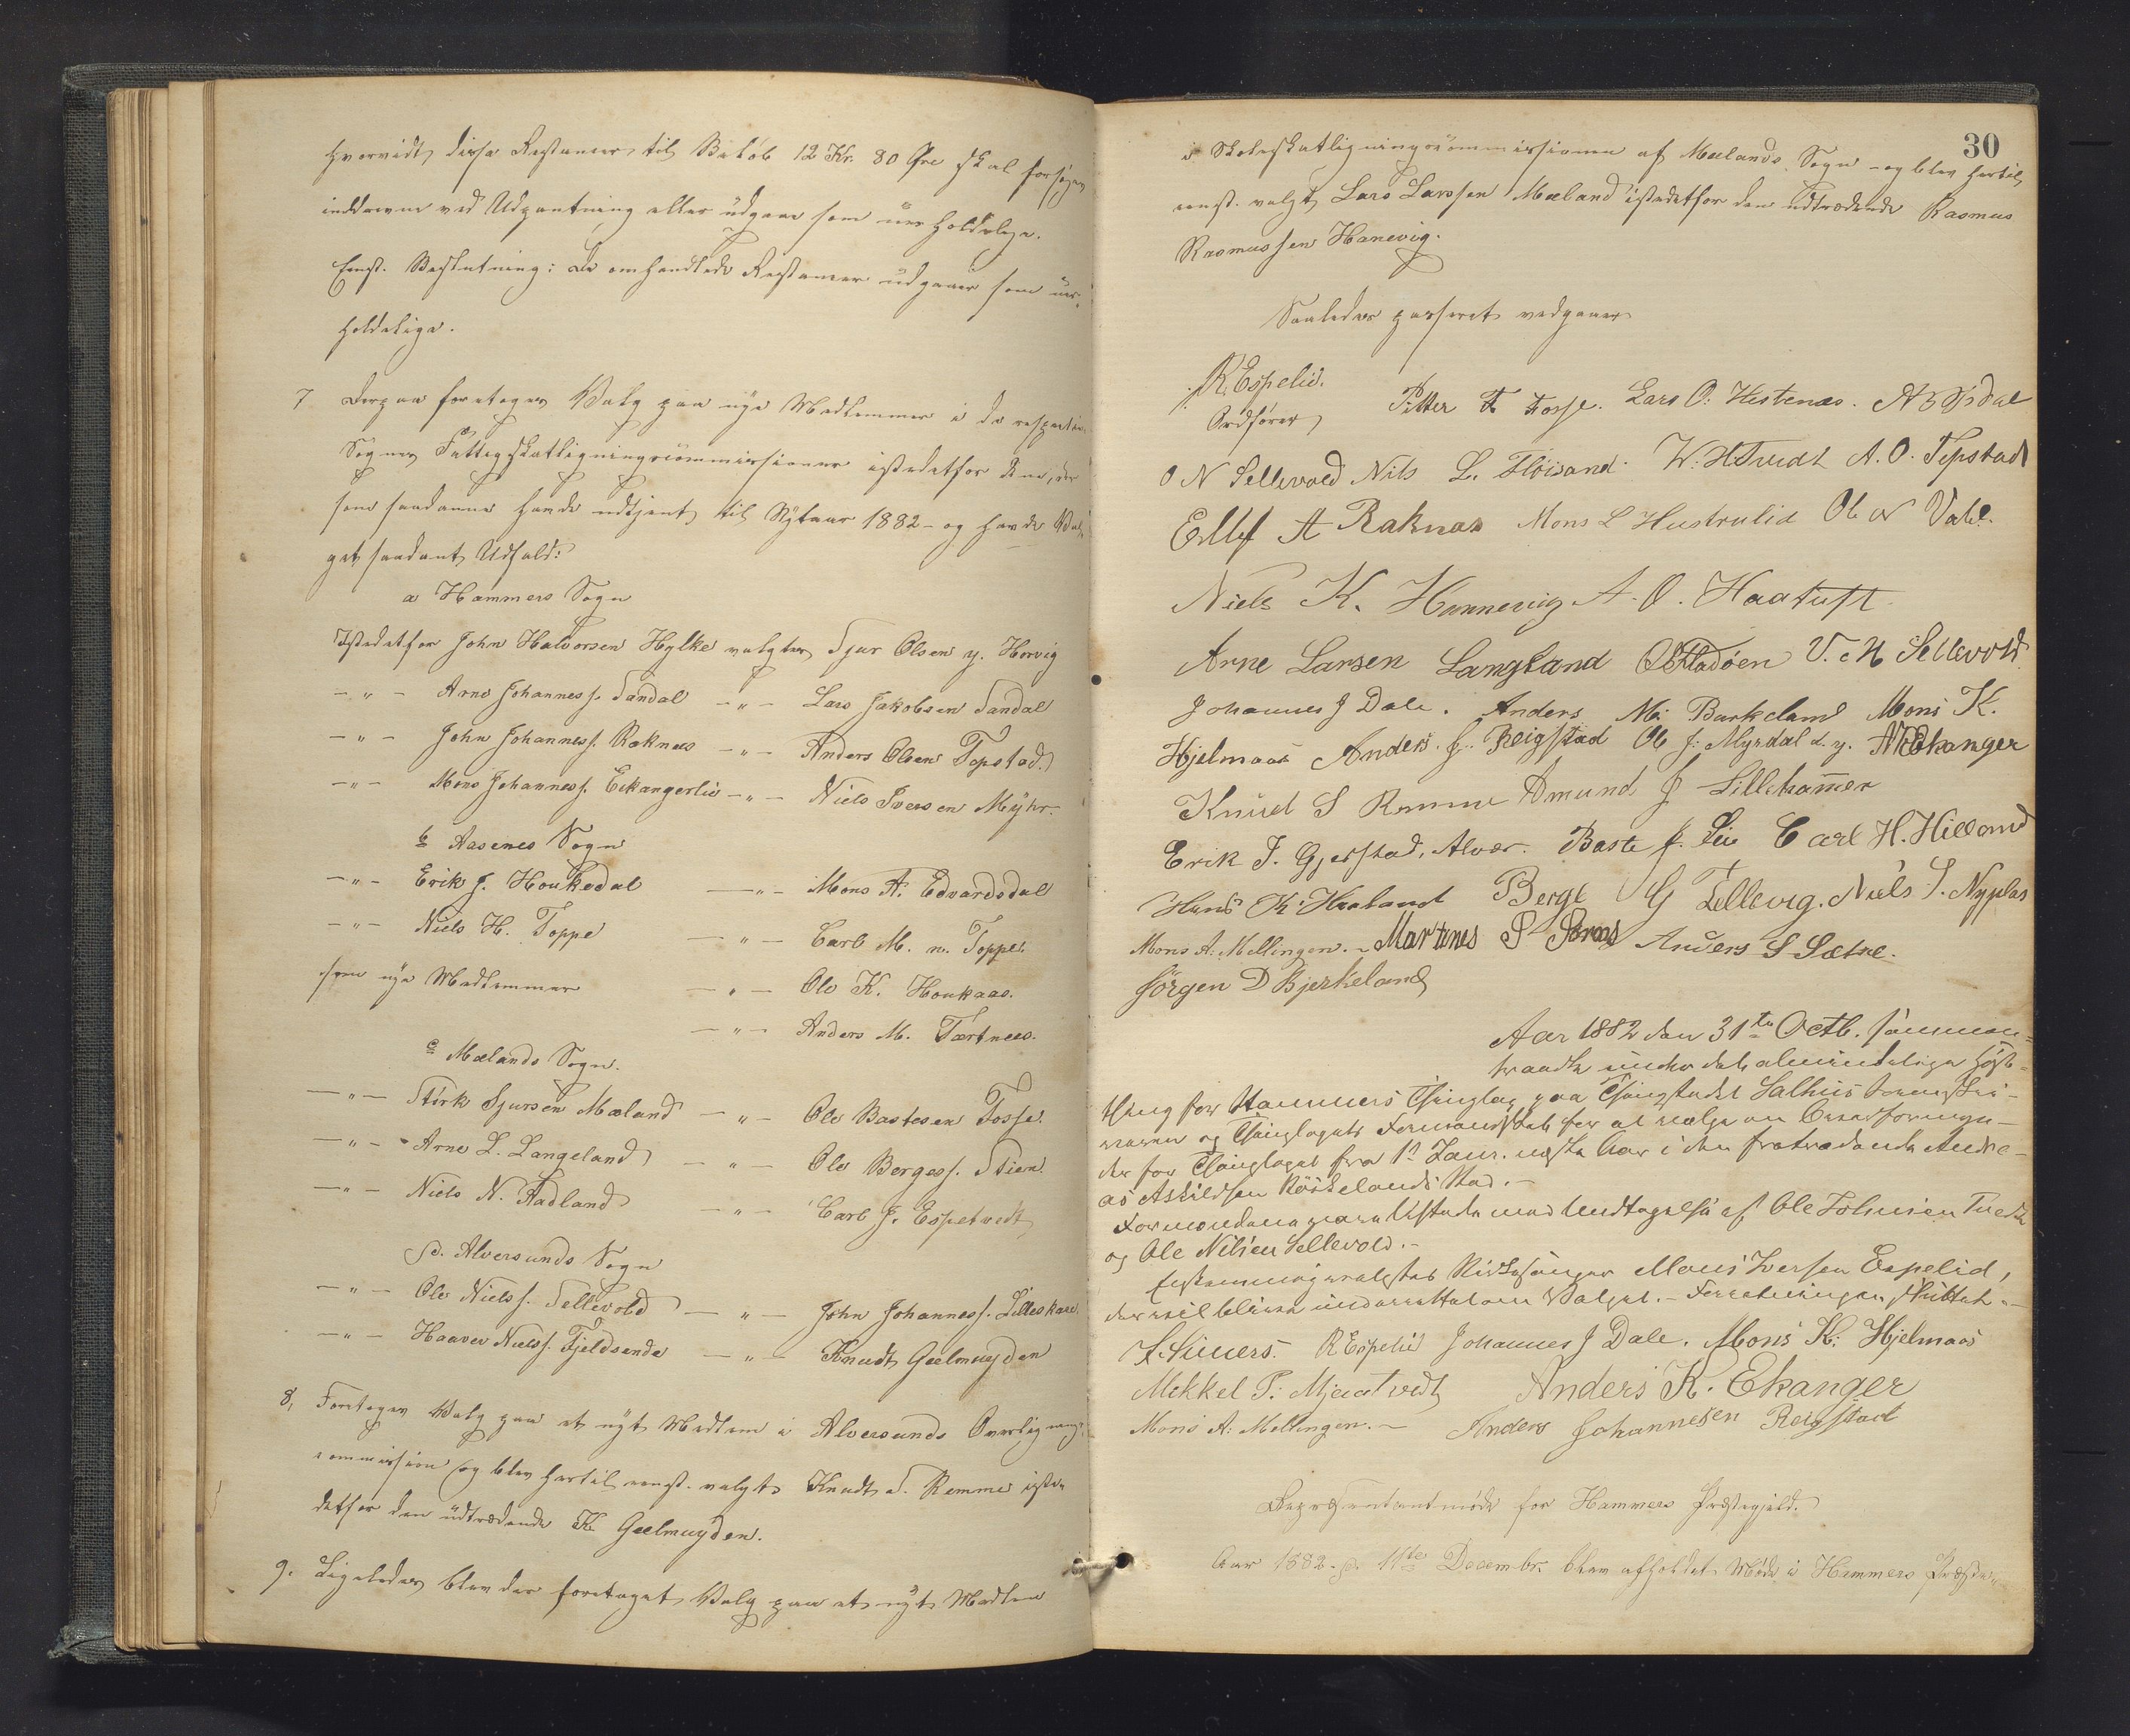 hvorvidt disse Restancer til Beløb 12 Kr. 80 Øre skal forsøges
inddrevne ved Udpantning eller udgaar som uerholdelige.
Enst. Beslutning: De omhandlede Restancer udgaaer som uer-
holdelige.
7 Derpaa foretoges Valg paa nye Medlemmer i de respective
Sognes Fattigskatligningscommissioner istedetfor dem, der
som saadanne havde udtjent til Nytaar 1882 - og havde Val-
get saadant Udfald:
a Hammers Sogn
Istedetfor John Halvorsen Hylke valgtes Sjur Olsen y. Horvig
-"- Arne Johanness. Tandal -"- Lars Jakobsen Tandal
-"- John Johanness. Roknes -"- Anders Olsen Topstad.
-"- Mons Johanness. Eikangerlid -"- Niels Iversen Myhr.
b Aasenes Sogn
-"- Erik J. Houkedal -"- Mons A. Edvardsdal
-"- Niels H. Toppe -"- Carl M. n. Toppe.
som nye Medlemmer -"- Ole K. Houkaas.
-"- Anders M. Tærtnes.
c Mælands Sogn.
-"- Stirk Sjursen Mæland -"- Ole Bastesen Fosse.
-"- Arne L. Langeland -"- Ole Borgess. Stien
-"- Niels N. Aadland -"- Carl J. Espetvedt
d. Alversunds Sogn
-"- Ole Nielss. Sellevold -"- John Johanness. Lilleskare.
-"- Haaver Nielss. Fjeldsende -"- Knudt Geelmuyden
8, Foretoges Valg paa et nyt Medlem i Alversunds Overlignings-
commission og blev hertil enst. valgt Knudt S. Remme iste-
detfor den udtrædende K. Geelmuyden.
9. Ligeledes blev der foretaget Valg paa et nyt Medlem
30
i Skoleskatligningscommissionen af Mælands Sogn - og blev hertil
enst. valgt Lars Larssen Mæland istedetfor den udtrædende Rasmus
Rasmussen Hanevig.
Saaledes passeret vedgaaes
R. Espelid.
Ordfører
Pitter F Fosse. Lars O. Hestenæs.
O N Sellevold Nils L. Fløisand. W. H Tvedt A. O. Tepstad
Ellef A Raknæs Mons L Hustrulid Ole N Vabø.
Niels K. Hannevig A. O. Haatuft
Arne Larsen Langeland O Fladøen V. H Sellevold
Johannes J Dale. Anders M: Barkeland Mons K.
Hjelmaas Anders. J. Reigstad Ole J. Myrdal d. y. A K Ekanger
Knud S Remme Amund J Lillehammer
Erik J. Gjerstad, Alver. Baste J. Lie Carl H. Hilland
Hans K. Haaland Berge G Tellevig. Niels S. Nyplas
Mons A. Mellingen. - Martines S Soraas Anders S Sætre.
Jørgen D Bjerkeland
Aar 1882 den 31te Octb. sammen-
traadte under det almindelige Høst-
thing for Hammers Thinglag paa Thingstedet Salhus Sorenskri-
veren og Thinglagets Formandskab for at vælge en Overformyn-
der for Thinglaget fra 1ste Janr. næste Aar i den fratrædende Andre-
as Askildsen Röskelands Sted. -
Formændene vare tilstede med Undtagelse af Ole Johnsen Tvedt
og Ole Nilsen Sellevold. -
Enstemmig valgtes Kirkesanger Mons Iversen Espelid,
der vil blive underrettet om Valget. - Forretningen sluttet. -
R Espelid Johannes J Dale. Mons K: Hjelmaas
Mekkel P: Mjaatvedt Anders K. Ekanger
Mons A: Mellingen. - Anders Johannesen Reigstad
Repræsentantmøde for Hammers Præstegjeld.
Aar 1882 d. 11te Decembr. blev afholdt Møde i Hammers Præste-